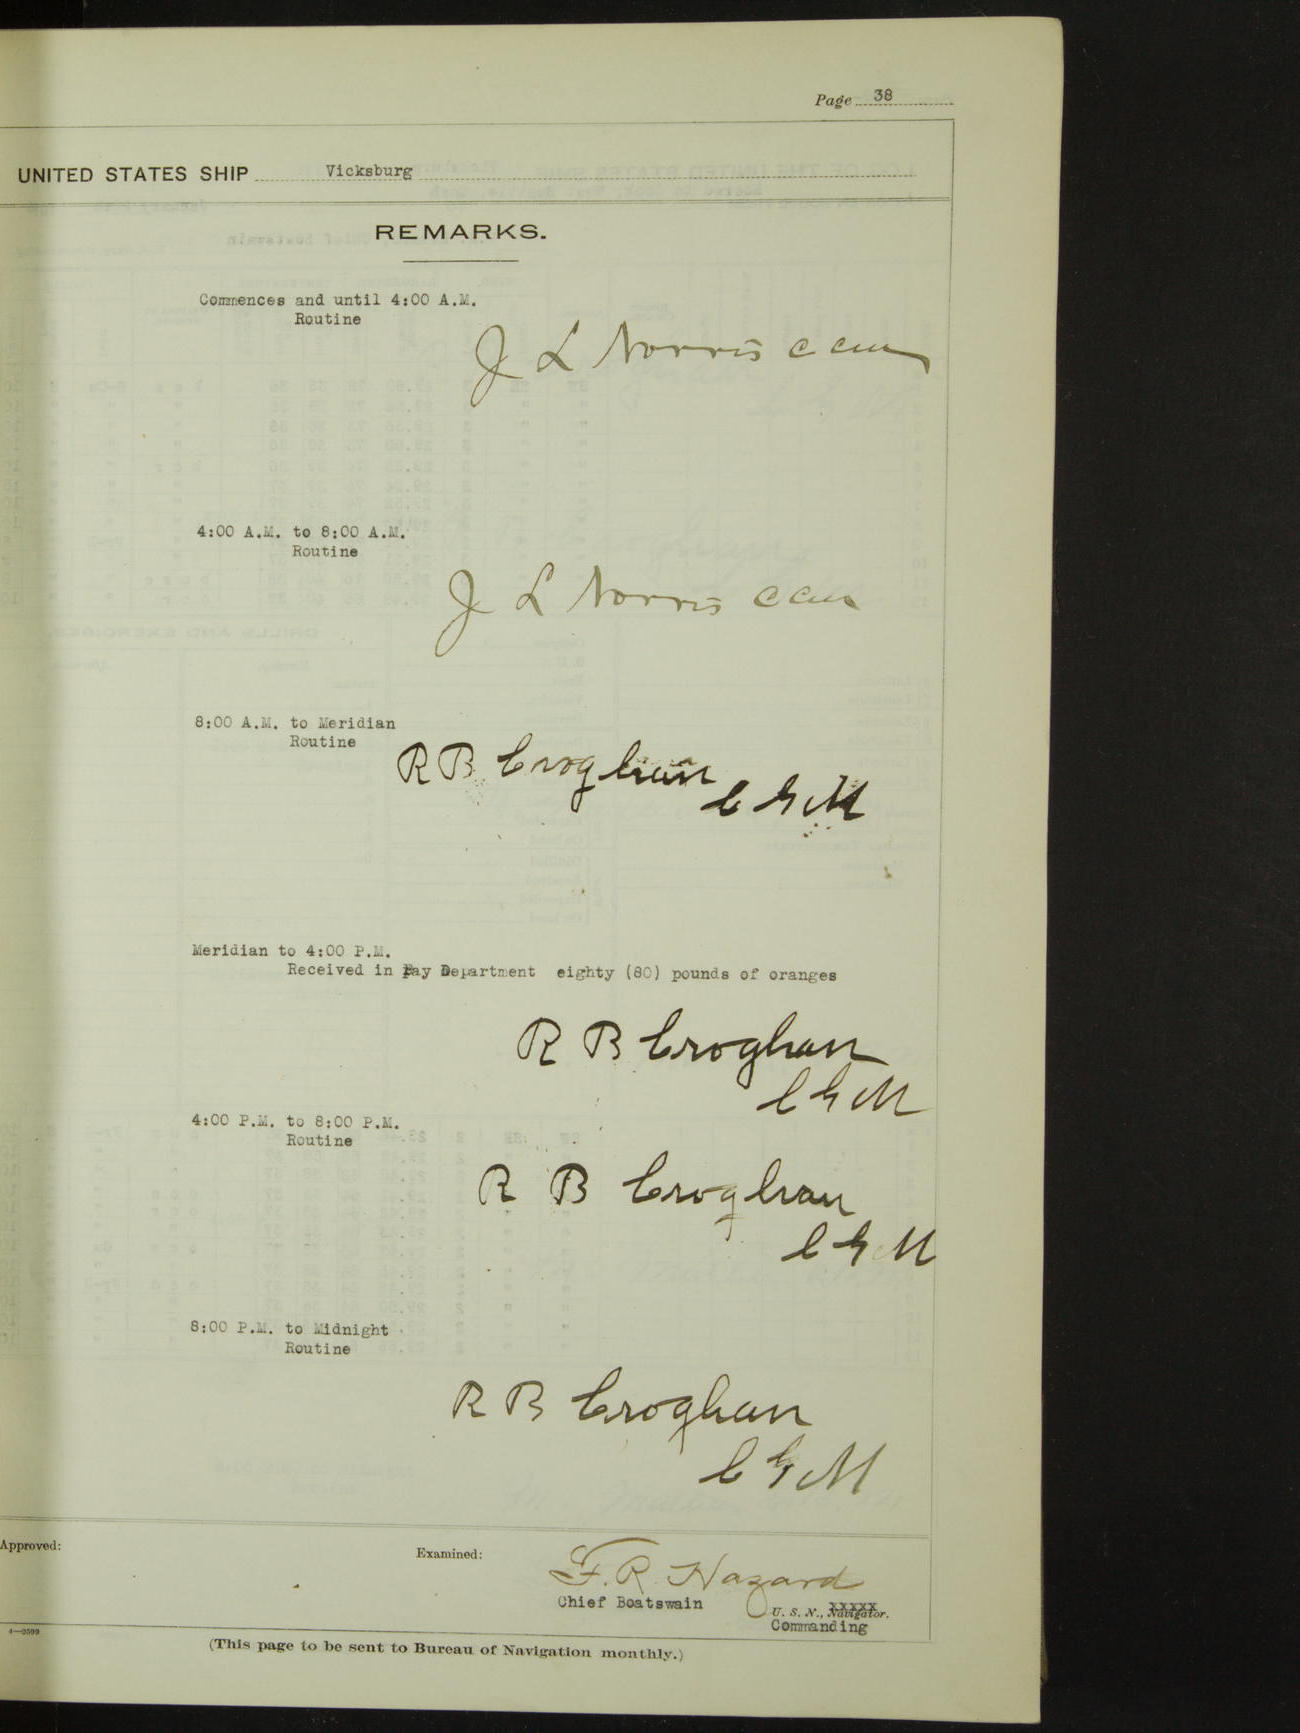 Page 38
UNITED STATES SHIP Vicksburg
REMARKS.
Commences and until 4:00 A.M.
Routine
J L Norris CCM
4:00 A.M. to 8:00 A.M.
Routine
J L Norris CCM
8:00 A.M. to Meridian
Routine
R B Croghan
C G M
Meridian to 4:00 P.M.
Received in Pay Department eighty (80) pounds of oranges
R B Croghan
C G M
4:00 P.M. to 8:00 P.M.
Routine
R B Croghan
C G M
8:00 P.M. to Midnight
Routine
R B Croghan
C G M
Approved:
Examined:
F. R. Hazard
Chief Boatswain
xxxxx
U. S. N., Navigator.
Commanding
4—2599
(This page to be sent to Bureau of Navigation monthly.)